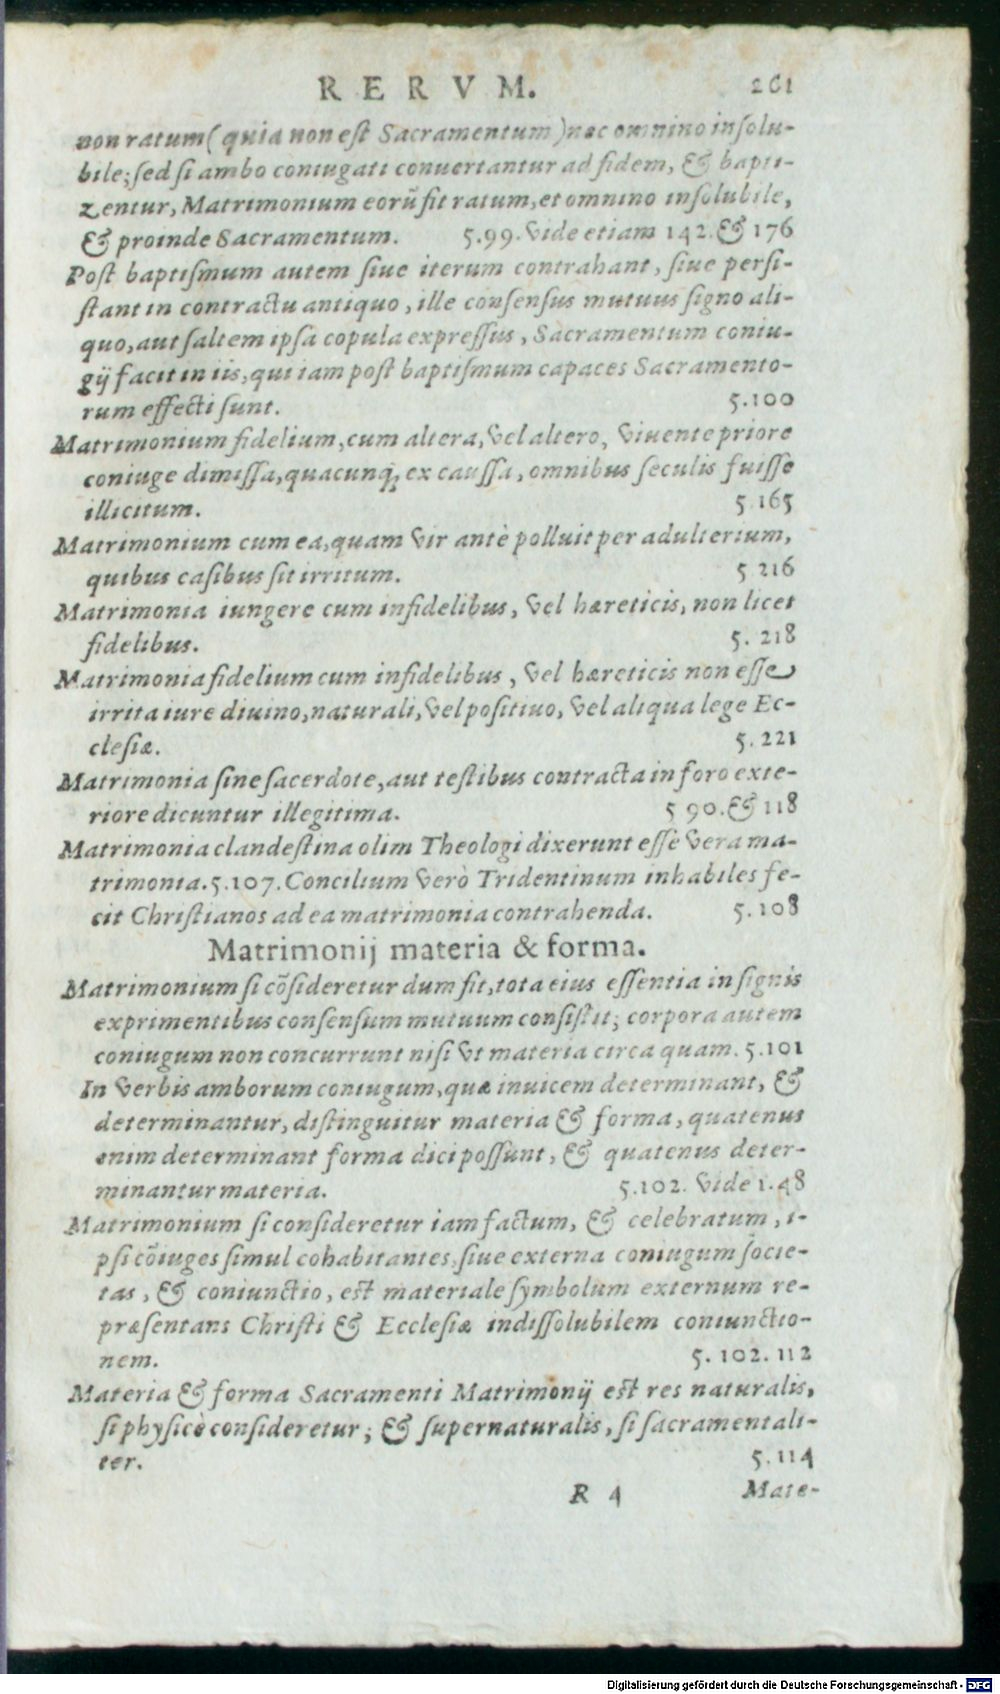 RERVM. 261
non ratum (quia non est Sacramentum) nec omnino insolu-
bile; sed si ambo coniugati conuertantur ad fidem, & bapti-
zentur, Matrimonium eorū fit ratum, et omnino insolubile,
& proinde Sacramentum. 5.99. Vide etiam 142. & 176
Post baptismum autem siue iterum contrahant, siue persi-
stant in contractu antiquo, ille consensus mutuus signo ali-
quo, aut saltem ipsa copula expressus, Sacramentum coniu-
gij facit in iis, qui iam post baptismum capaces Sacramento-
rum effecti sunt. 5.100
Matrimonium fidelium, cum altera, vel altero, viuente priore
coniuge dimissa, quacunq; ex caussa, omnibus seculis fuisse
illicitum. 5.165
Matrimonium cum ea, quam vir antè polluit per adulterium,
quibus casibus sit irritum. 5 216
Matrimonia iungere cum infidelibus, vel hæreticis, non licet
fidelibus. 5. 218
Matrimonia fidelium cum infidelibus, vel hæreticis non esse
irrita iure diuino, naturali, vel positiuo, vel aliqua lege Ec-
clesiæ. 5.221
Matrimonia sine sacerdote, aut testibus contracta in foro exte-
riore dicuntur illegitima. 5 90. & 118
Matrimonia clandestina olim Theologi dixerunt esse vera ma-
trimonia. 5.107. Concilium verò Tridentinum inhabiles fe-
cit Christianos ad ea matrimonia contrahenda. 5.108
Matrimonij materia & forma.
Matrimonium si cōsideretur dum fit, tota eius essentia in signis
exprimentibus consensum mutuum consistit; corpora autem
coniugum non concurrunt nisi vt materia circa quam. 5.101
In verbis amborum coniugum, quæ inuicem determinant, &
determinantur, distinguitur materia & forma, quatenus
enim determinant forma dici possunt, & quatenus deter-
minantur materia. 5.102. Vide 1.48
Matrimonium si consideretur iam factum, & celebratum, i-
psi cōiuges simul cohabitantes, siue externa coniugum socie-
tas, & coniunctio, est materiale symbolum externum re-
præsentans Christi & Ecclesiæ indissolubilem coniunctio-
nem. 5. 102. 112
Materia & forma Sacramenti Matrimonij est res naturalis,
si physicè consideretur; & supernaturalis, si sacramentali-
ter. 5.114
R 4 Mate-
Digitalisierung gefördert durch die Deutsche Forschungsgemeinschaft - DFG